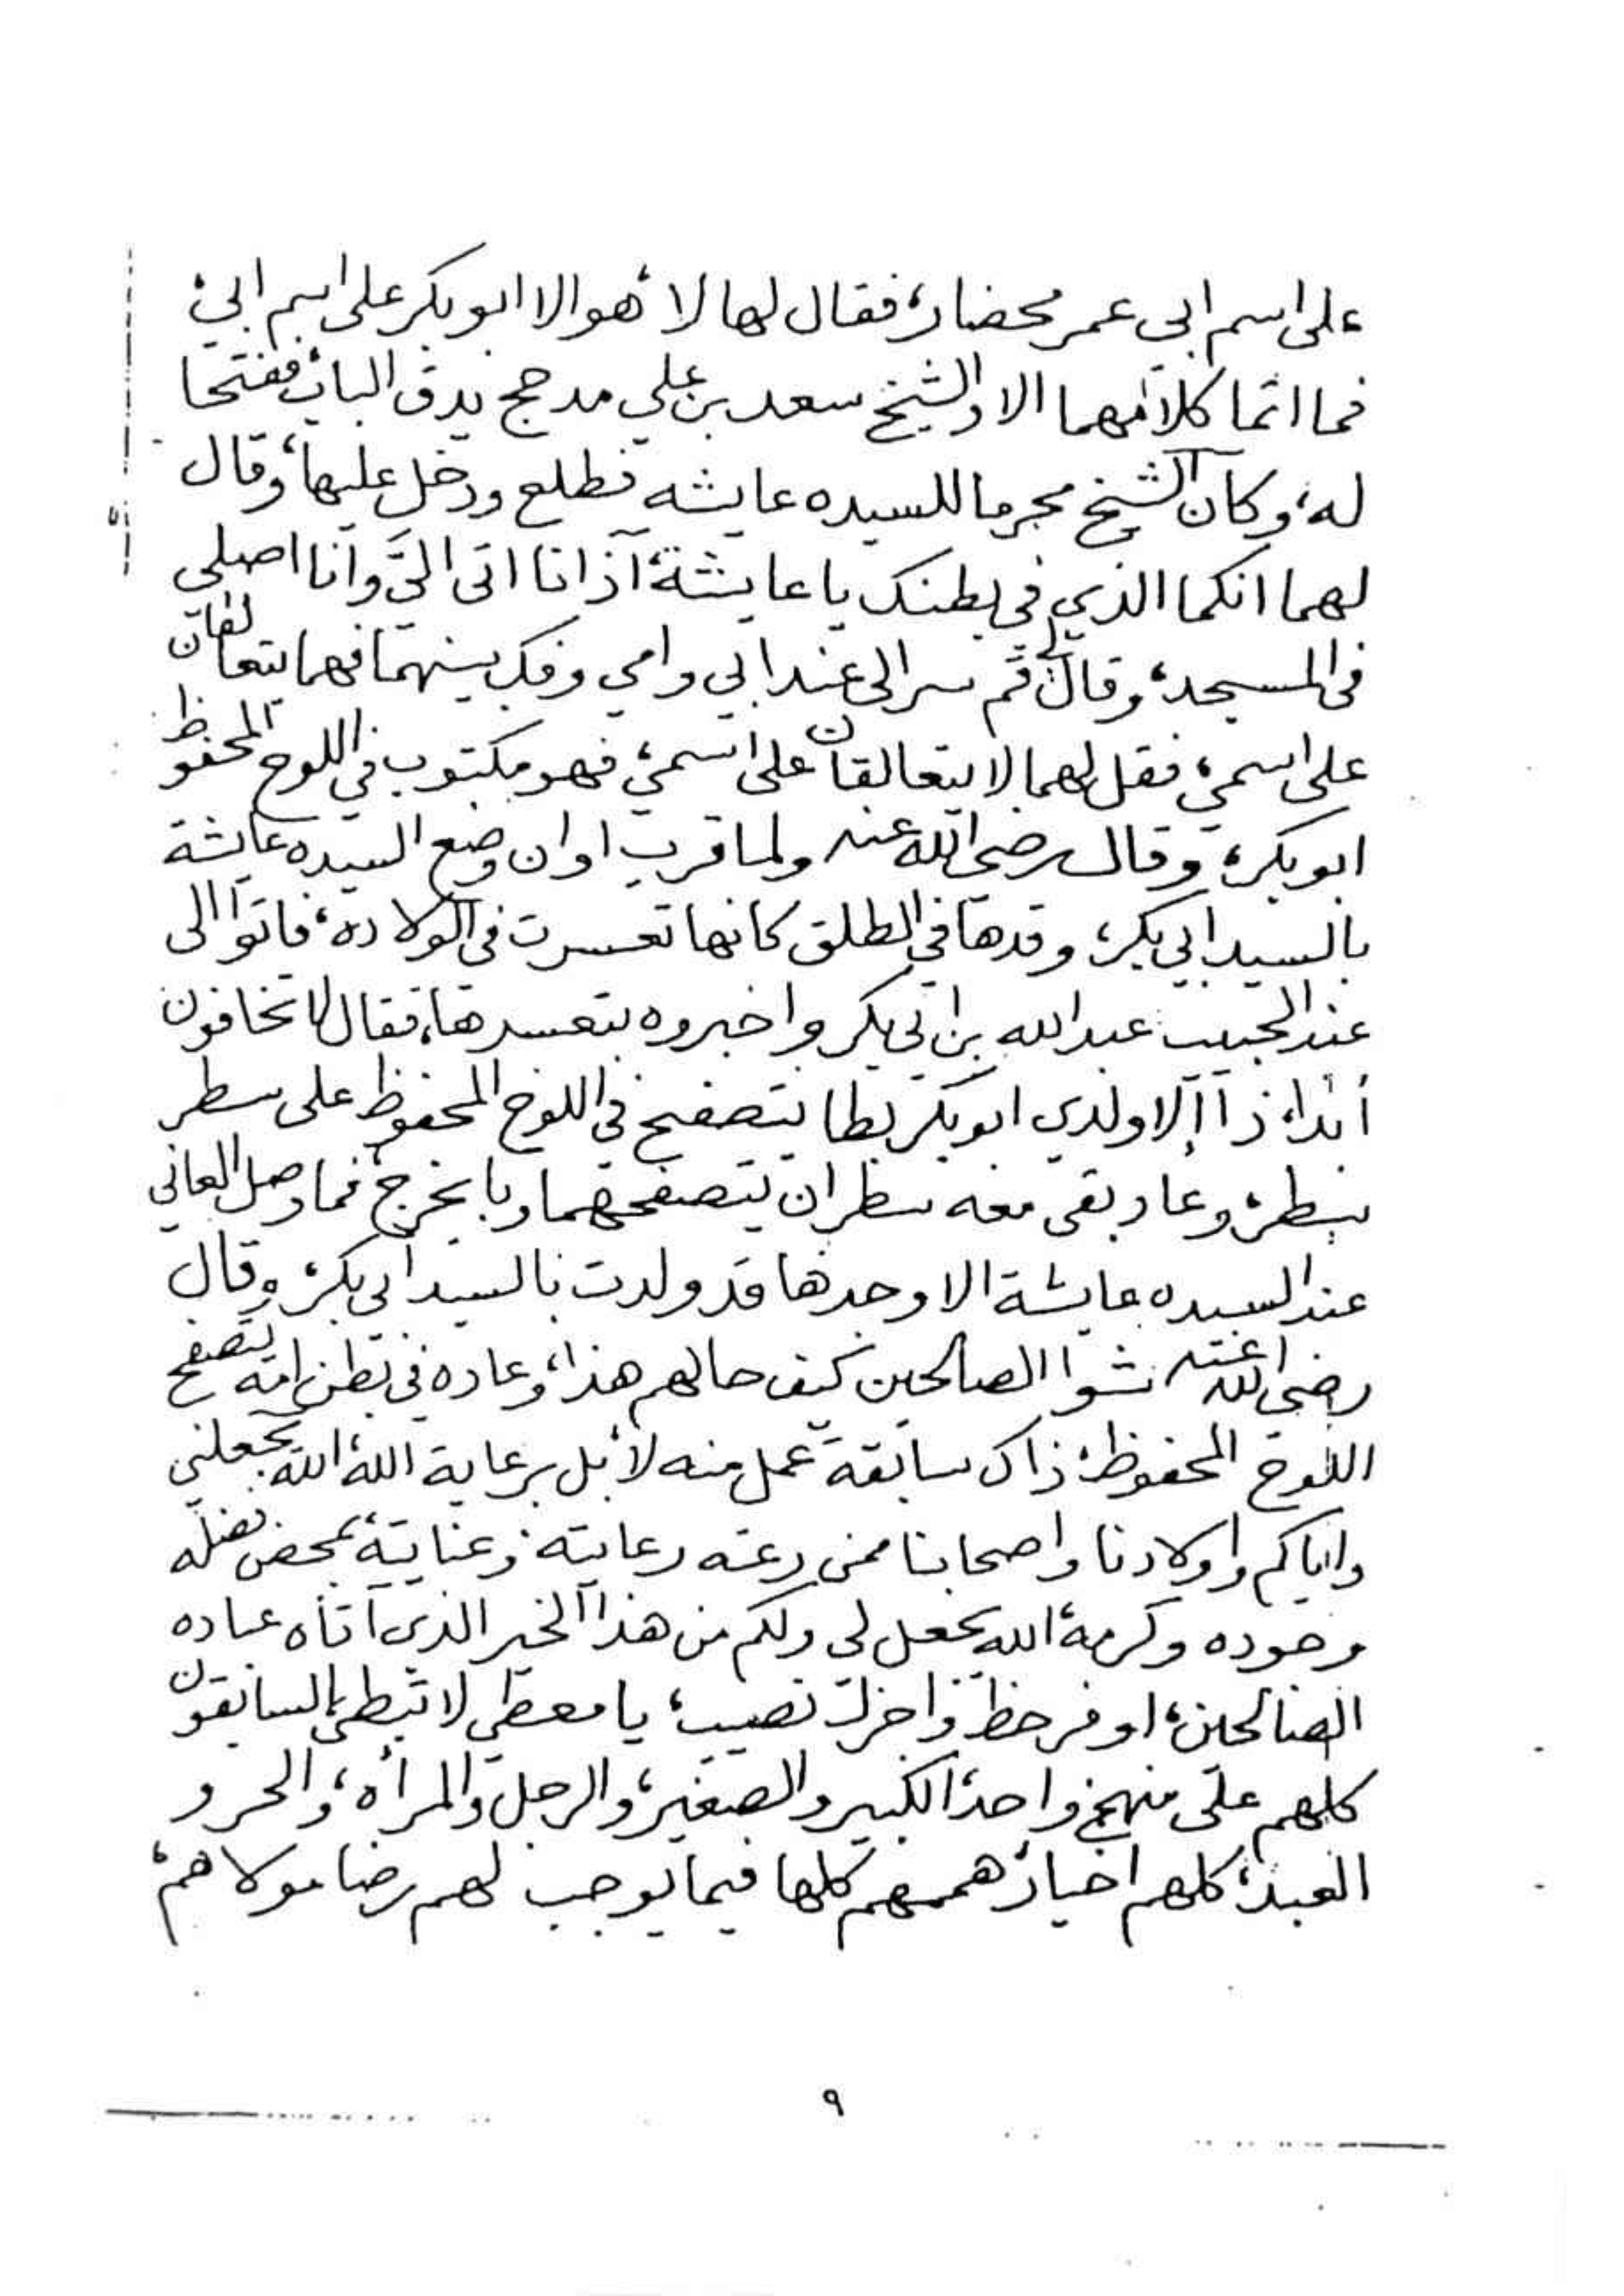 على اسم ابي عمر محضار، فقال لها لا هو الا ابو بكر على اسم ابي،
فما اتما كلامهما الا والشيخ سعد بن علي مدحج يدق الباب، ففتحا
له، وكان الشيخ محرما للسيده عايشه فطلع ودخل عليها، وقال
لهما انكما الذي في بطنك يا عايشة، آذانا اتى اليّ وانا اصلي
في المسجد، وقال لي قم سر الى عند ابي وامي وفك بينهما فهما يتعالقان
على اسمي، فقل لهما لا يتعالقان على اسمي، فهو مكتوب في اللوح المحفوظ
ابو بكر، وقال رضي الله عنه ولما قرب اوان وضع السيده عايشة
بالسيد ابي بكر، وقدها في الطلق كانها تعسرت في الولاده، فاتوا الى
عند الحبيب عبدالله بن ابي بكر واخبروه بتعسرها، فقال لا تخافون
أبدا، ذا إلا ولدي ابو بكر بطا يتصفح في اللوح المحفوظ على سطر
بسطر، وعاد بقى معه سطران يتصفحهما وبا يخرج، فما وصل العاني
عند السيده عايشة الا وجدها قد ولدت بالسيد ابي بكر، وقال
رضي الله عنه شوا الصالحين كيف حالهم هذا، وعاده في بطن امه يتصفح
اللوح المحفوظ، ذاك سابقة عمل منه لا بل برعاية الله، الله يجعلني
واياكم واولادنا واصحابنا ممن رعته رعايته وعنايته، بمحض فضله
وجوده وكرمه، الله يجعل لي ولكم من هذا الخير الذي آتاه عباده
الصالحين، اوفر حظ واجزل نصيب، يا معطي لا تبطي، السابقون
كلهم على منهج واحد، الكبير والصغير، والرجل والمرأه، والحر و
العبد، كلهم اخيار، هممهم كلها فيما يوجب لهم رضا مولاهم،
٩